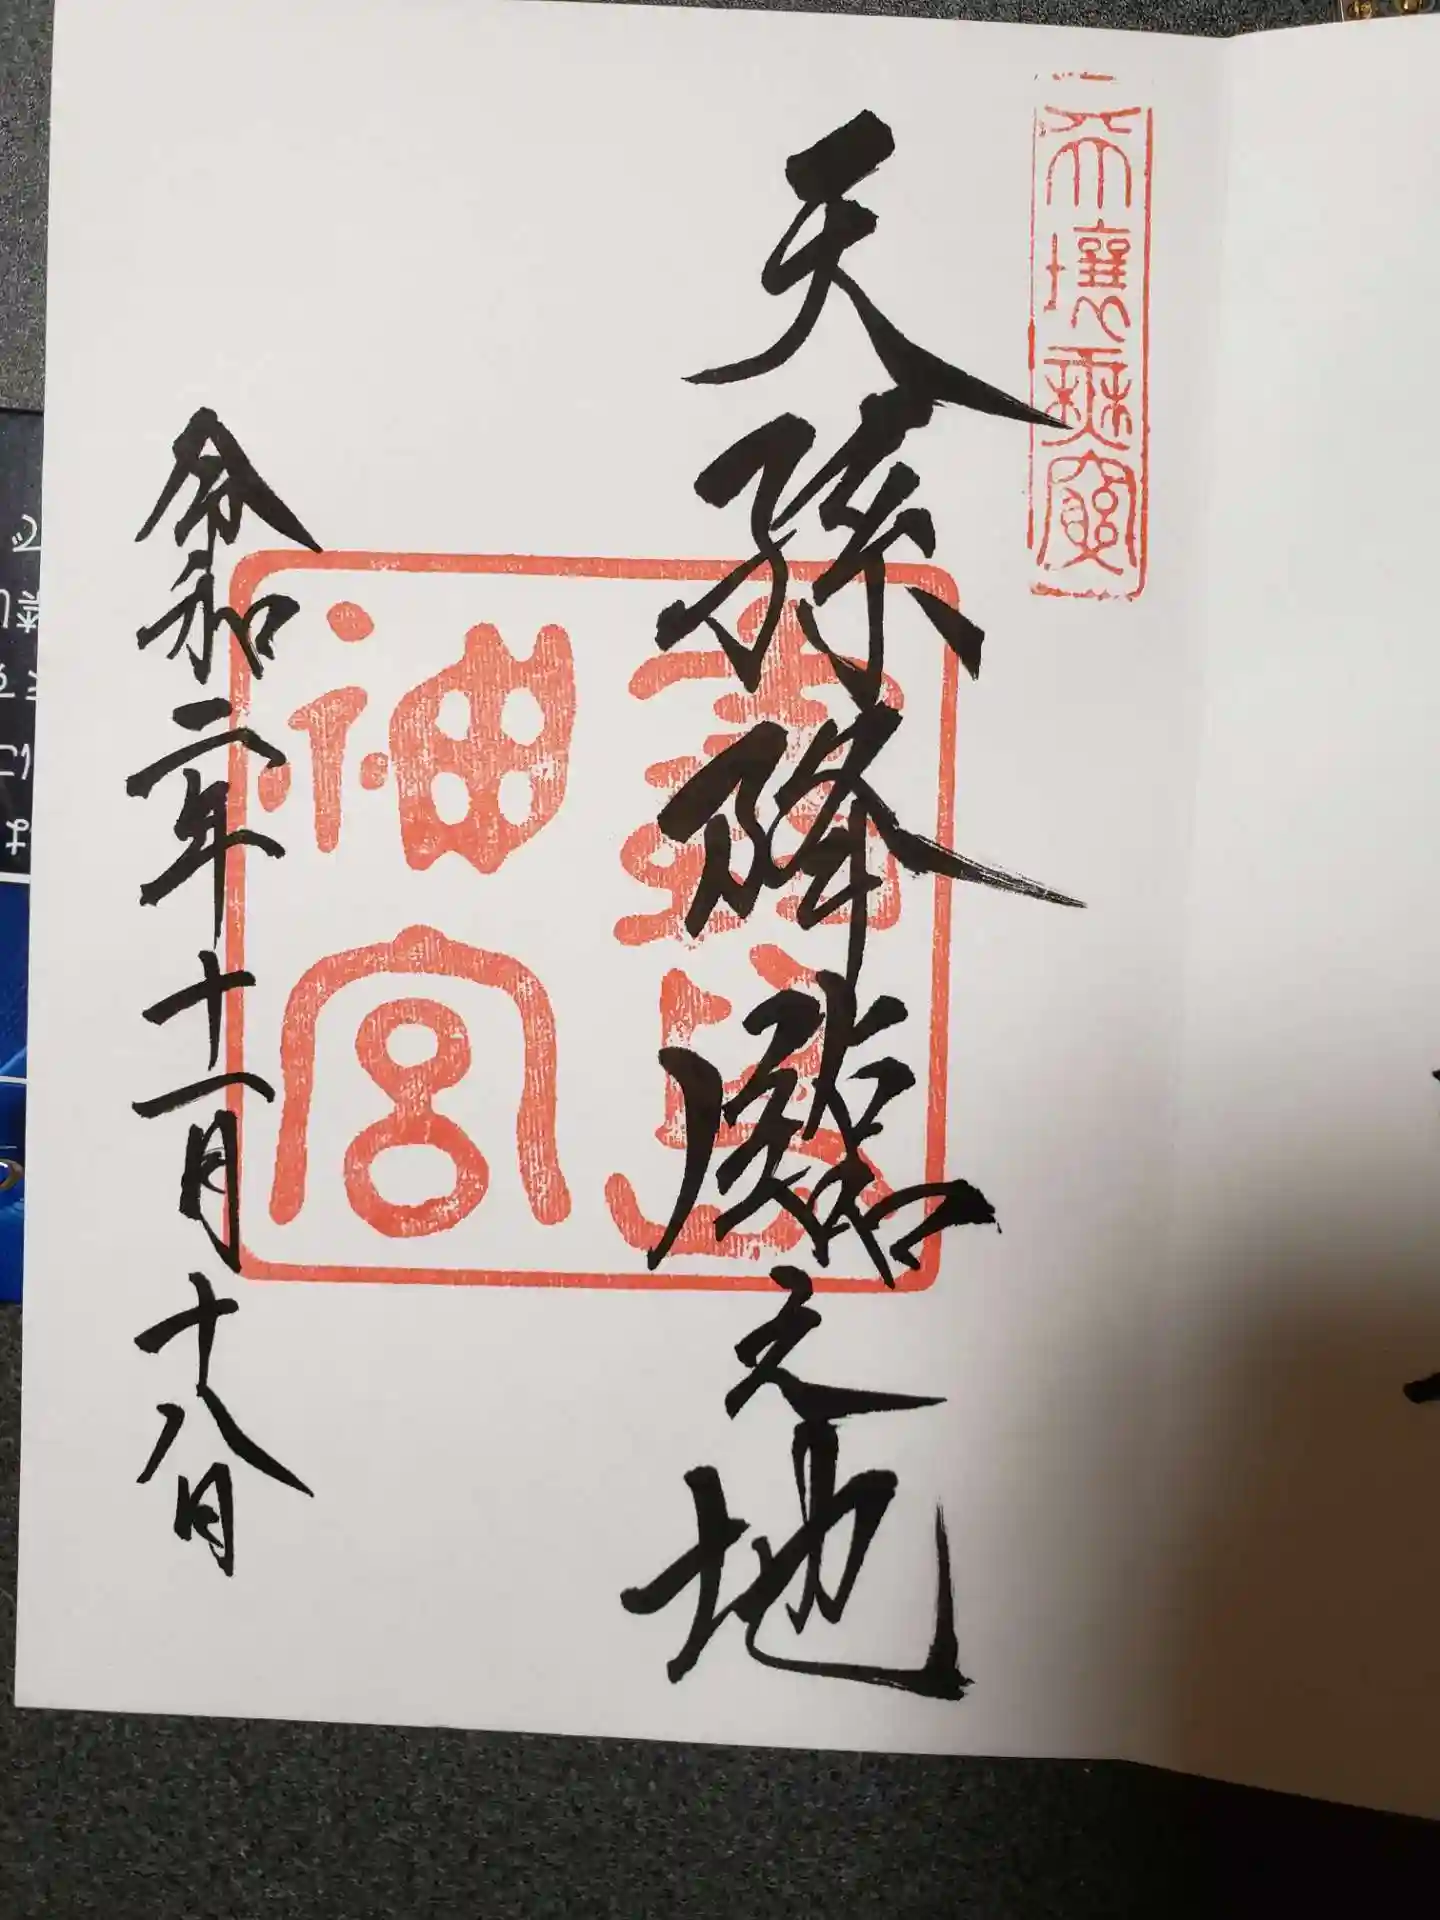 天壤無窮
天孫降臨之地
霧島
神宮
令和二年十一月十八日